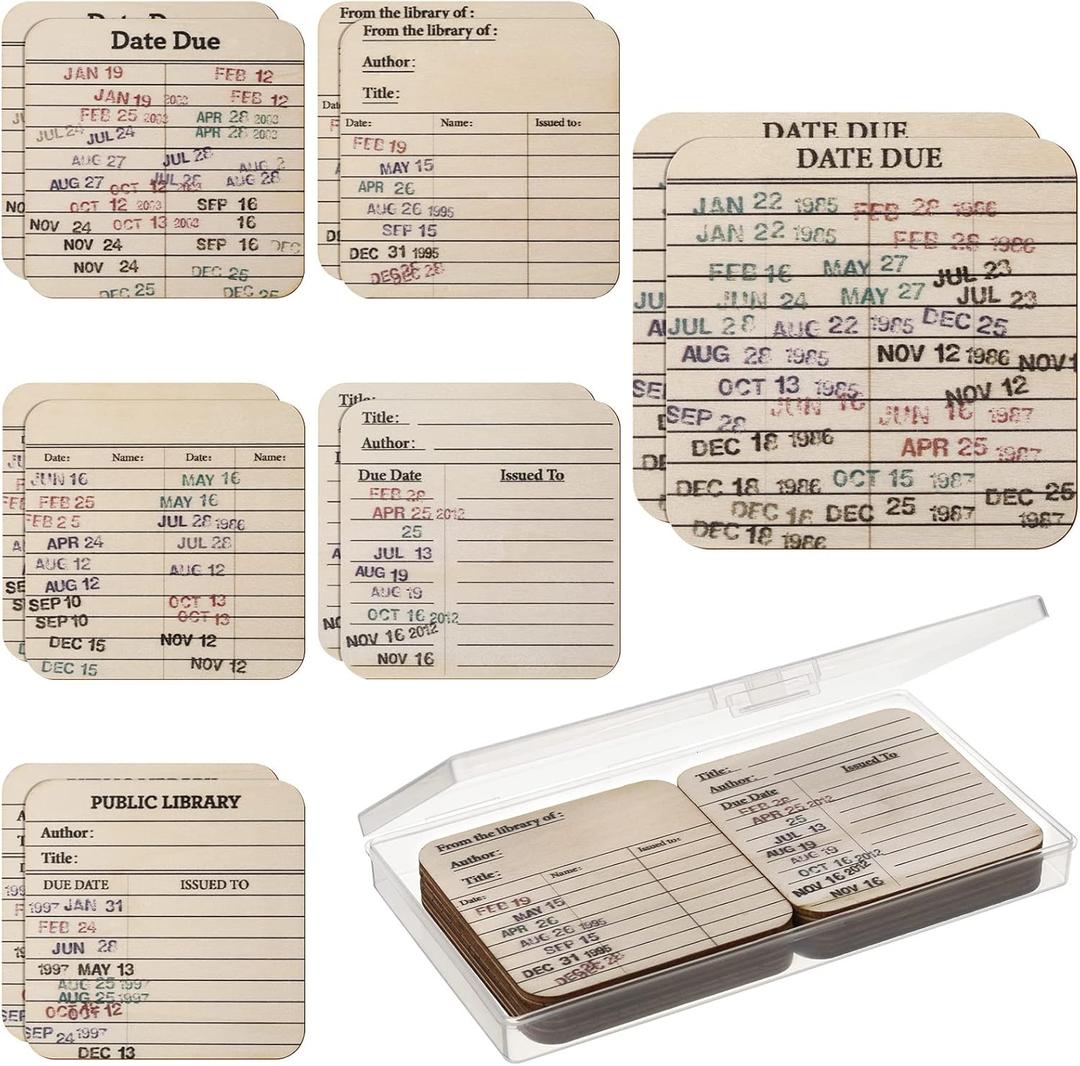 Date Due
JAN 19 FEB 12
JAN 19 2003 FEB 12
FEB 25 2003 APR 28 2003
JUL 24 JUL 24 APR 28 2003
AUG 27 JUL 28 AUG 2
AUG 27 OCT 12 2003 JUL 28 AUG 28
OCT 12 2003 SEP 16
NOV 24 OCT 13 2003 16
NOV 24 SEP 16 DEC
NOV 24 DEC 25
DEC 25 DEC 25
NO
From the library of :
From the library of :
Author:
Title:
Date: Name: Issued to:
FEB 19
MAY 15
APR 26
AUG 26 1995
SEP 15
DEC 31 1995
DATE DUE
DATE DUE
JAN 22 1985 FEB 28 1986
JAN 22 1985 FEB 28 1986
FEB 16 MAY 27 JUL 23
JUN 24 MAY 27 JUL 23
JUL 28 AUG 22 1985 DEC 25
AUG 28 1985 NOV 12 1986 NOV 1
OCT 13 1985 NOV 12
SEP 28 JUN 16 JUN 16 1987
DEC 18 1986 APR 25 1987
OCT 15 1987
DEC 18 1986 DEC 25
DEC 18 DEC 25 1987 1987
DEC 18 1986
JU
SEP
Date: Name: Date: Name:
JUN 16 MAY 16
FEB 25 MAY 16
FEB 25 JUL 28 1986
APR 24 JUL 28
AUG 12 AUG 12
AUG 12
SEP 10 OCT 13
SEP 10 OCT 13
DEC 15 NOV 12
DEC 15 NOV 12
Title:
Title:
Author:
Due Date Issued To
FEB 28
APR 25 2012
25
JUL 13
AUG 19
AUG 19
OCT 16 2012
NOV 16 2012
NOV 16
PUBLIC LIBRARY
Author:
Title:
DUE DATE ISSUED TO
1997 JAN 31
FEB 24
JUN 28
1997 MAY 13
AUG 25 1997
AUG 25 1997
OCT 12
SEP 24 1997
DEC 13
From the library of :
Author:
Title:
Date: Name: Issued to:
FEB 19
MAY 15
APR 26
AUG 26 1995
SEP 15
DEC 31 1995
Title:
Author:
Due Date Issued To
FEB 28
APR 25 2012
25
JUL 13
AUG 19
AUG 19
OCT 16 2012
NOV 16 2012
NOV 16